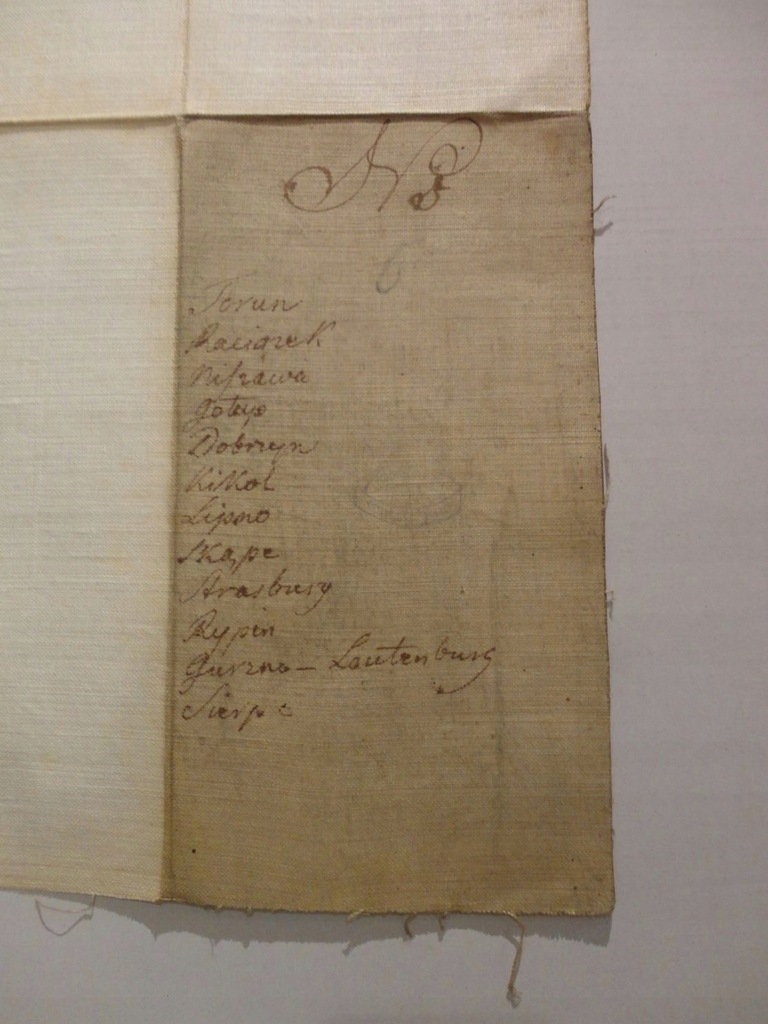 No 5
6
Torun
Raciązek
Nifzawa
Dobrzyn
Kikol
Lipno
Skąpe
Strasburg
Rypin
Gurzno – Lautenburg
Sierpc